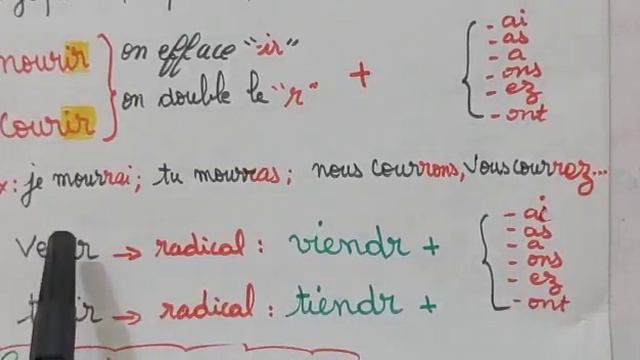 mourir
courir
on efface "-ir"
on double le "r"
+
- ai
- as
- a
- ons
- ez
- ont
x: je mourrai; tu mourras; nous courrons, vous courrez...
→ radical : viendr +
→ radical : tiendr +
- ai
- as
- a
- ons
- ez
- ont